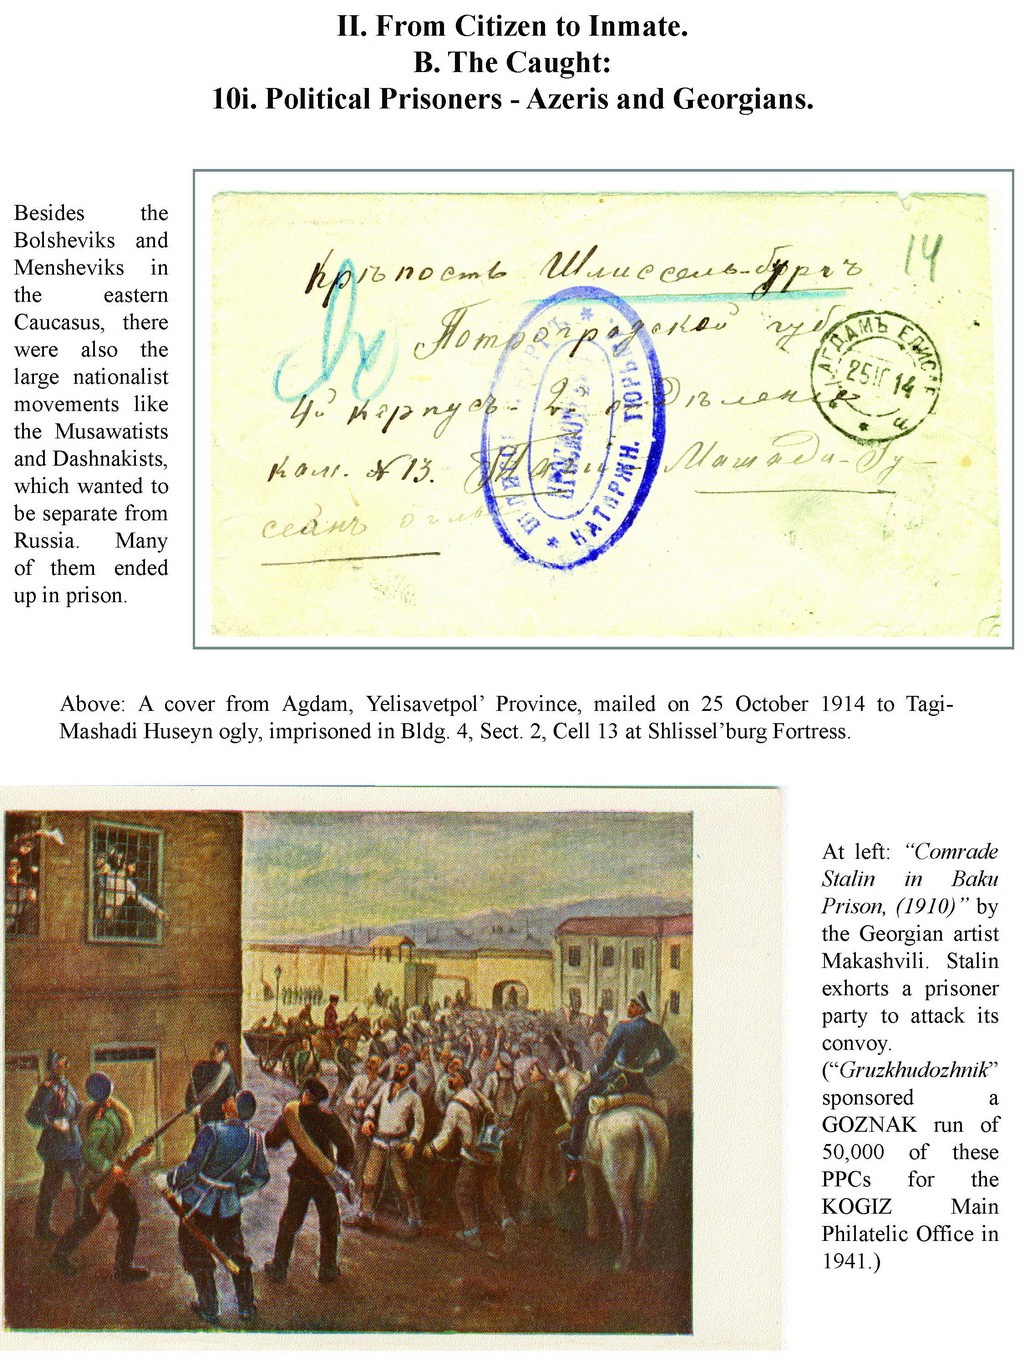 II. From Citizen to Inmate.
B. The Caught:
10i. Political Prisoners - Azeris and Georgians.
Besides the
Bolsheviks and
Mensheviks in
the eastern
Caucasus, there
were also the
large nationalist
movements like
the Musawatists
and Dashnakists,
which wanted to
be separate from
Russia. Many
of them ended
up in prison.
14
Крѣпость Шлиссель-бургъ
Петроградской губ
4й корпусъ 2 отдѣленіе
кам. № 13. Таги Машади-Гу-
сейнъ оглы
АГДАМЪ ЕЛИС.
25 10 14
КАТОРЖН. ТЮРЬМА
Above: A cover from Agdam, Yelisavetpol’ Province, mailed on 25 October 1914 to Tagi-
Mashadi Huseyn ogly, imprisoned in Bldg. 4, Sect. 2, Cell 13 at Shlissel’burg Fortress.
At left: “Comrade
Stalin in Baku
Prison, (1910)” by
the Georgian artist
Makashvili. Stalin
exhorts a prisoner
party to attack its
convoy.
(“Gruzkhudozhnik”
sponsored a
GOZNAK run of
50,000 of these
PPCs for the
KOGIZ Main
Philatelic Office in
1941.)